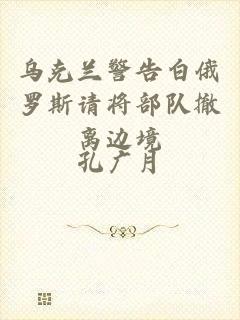 乌克兰警告白俄
罗斯请将部队撤
离边境
孔广月